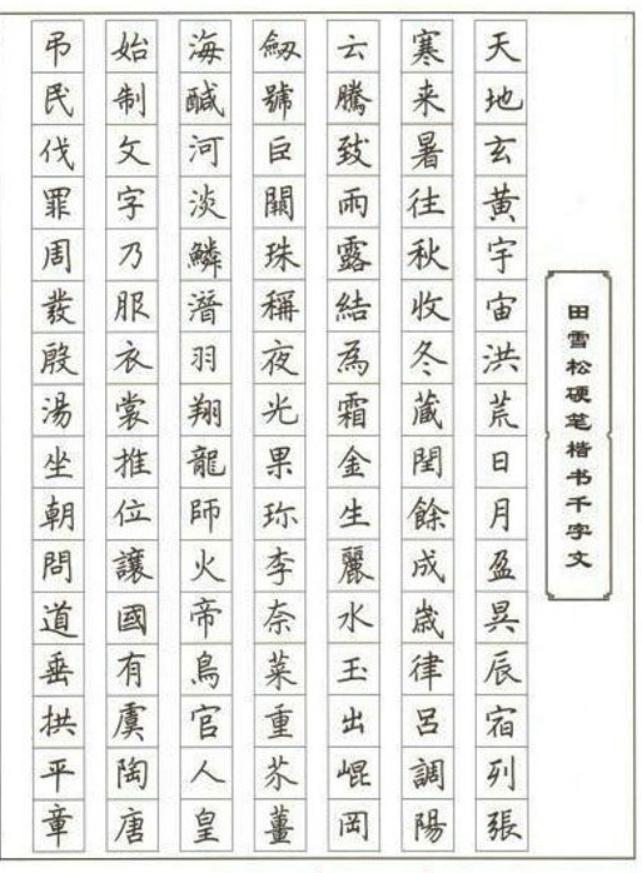 田雪松硬笔楷书千字文
天地玄黄宇宙洪荒日月盈昃辰宿列張
寒来暑往秋收冬蔵閏餘成歲律呂調陽
云騰致雨露結為霜金生麗水玉出崐岡
劒號巨闕珠稱夜光果珎李奈菜重芥薑
海醎河淡鱗潛羽翔龍師火帝鳥官人皇
始制文字乃服衣裳推位讓國有虞陶唐
弔民伐罪周發殷湯坐朝問道垂拱平章